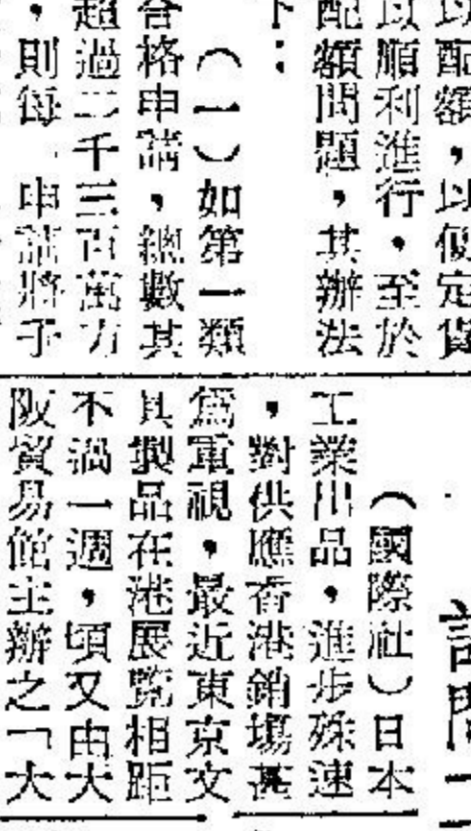 以配額，以便定貨
以順利進行。至於
配額問題，其辦法
下：
（一）如第一類
合格申請，總數其
超過二千三百萬方
，則每一申請將予
（國際社）日本
工業出品，進步殊速
，對供應香港銷場甚
爲重視。最近東京文
具製品在港展覽相距
不過一週，頃又由大
阪貿易館主辦之「大